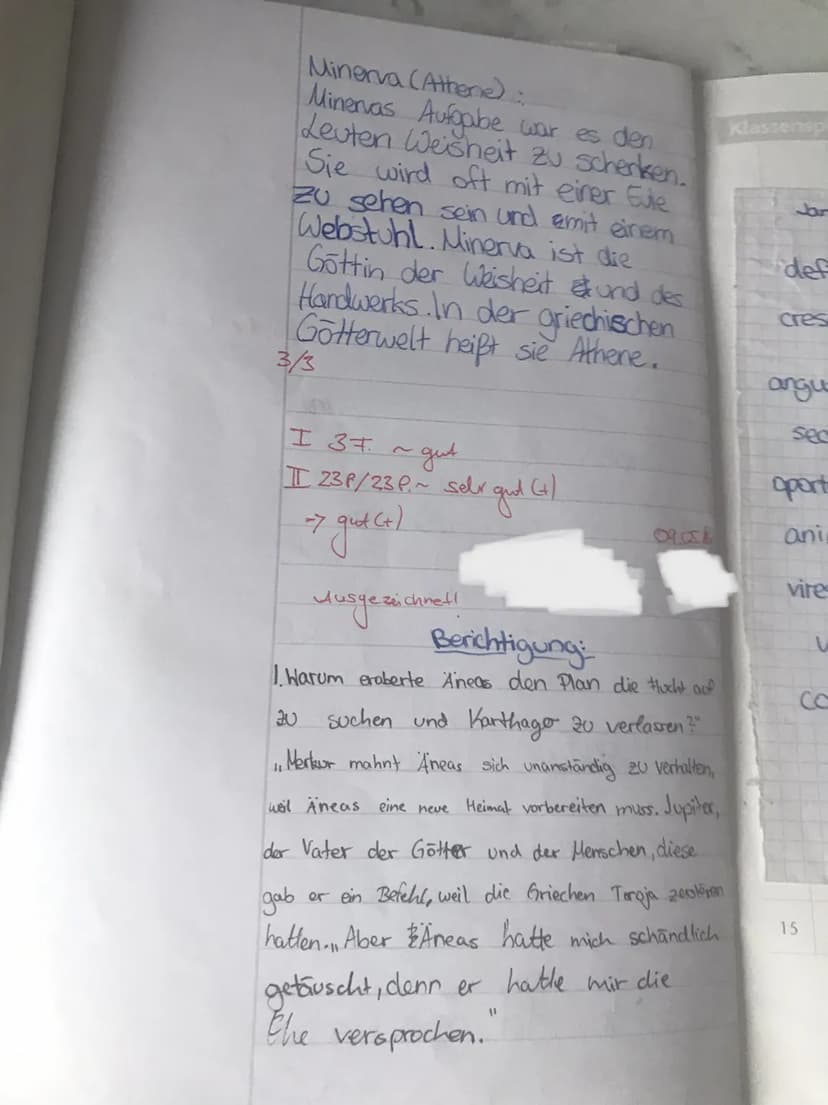 Minerva (Athene):
Minervas Aufgabe war es den
Leuten Weisheit zu schenken.
Sie wird oft mit einer Eule
zu sehen sein und mit einem
Webstuhl. Minerva ist die
Göttin der Weisheit und des
Handwerks. In der griechischen
Götterwelt heißt sie Athene.
3/3
I 3F. ~ gut
II 23P/23P. ~ sehr gut (+)
→ gut (+)
09.05.
Ausgezeichnet!
Berichtigung:
1. Warum eroberte Äneas den Plan die Flucht auf
zu suchen und Karthago zu verlassen?"
„Merkur mahnt Äneas sich unanständig zu verhalten,
weil Äneas eine neue Heimat vorbereiten muss. Jupiter,
der Vater der Götter und der Menschen, diese
gab er ein Befehl, weil die Griechen Toroja zerstören
hatten. „Aber Äneas hatte mich schändlich
getäuscht, denn er hatte mir die
Ehe versprochen."
Klassensp
def
cres
angu
sec
oport
ani
vires
co
15